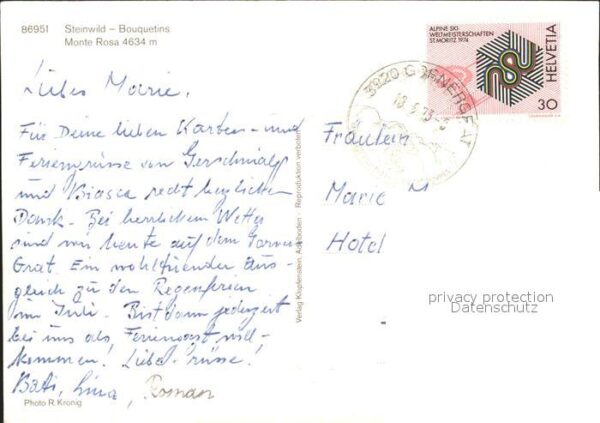 86951 Steinwild – Bouquetins
Monte Rosa 4634 m
ALPINE SKI
WELTMEISTERSCHAFTEN
ST. MORITZ 1974
HELVETIA
30
3920 GORNERGRAT
Liebes Marie,
Für Deine lieben Karten- und
Feriengrüsse von Gerschnialp
und Biasca recht herzlichen
Dank. Bei herrlichem Wetter
sind wir heute auf dem Gorner
Grat. Ein wohltuender Aus-
gleich zu den Regenferien
im Juli. Bist dann jederzeit
bei uns als Feriengast will-
kommen! Liebe Grüsse!
Lina, Roman
Fräulein
Marie M
Hotel
Verlag Klopfenstein, Adelboden - Reproduktion verboten
privacy protection
Datenschutz
Photo R. Kronig